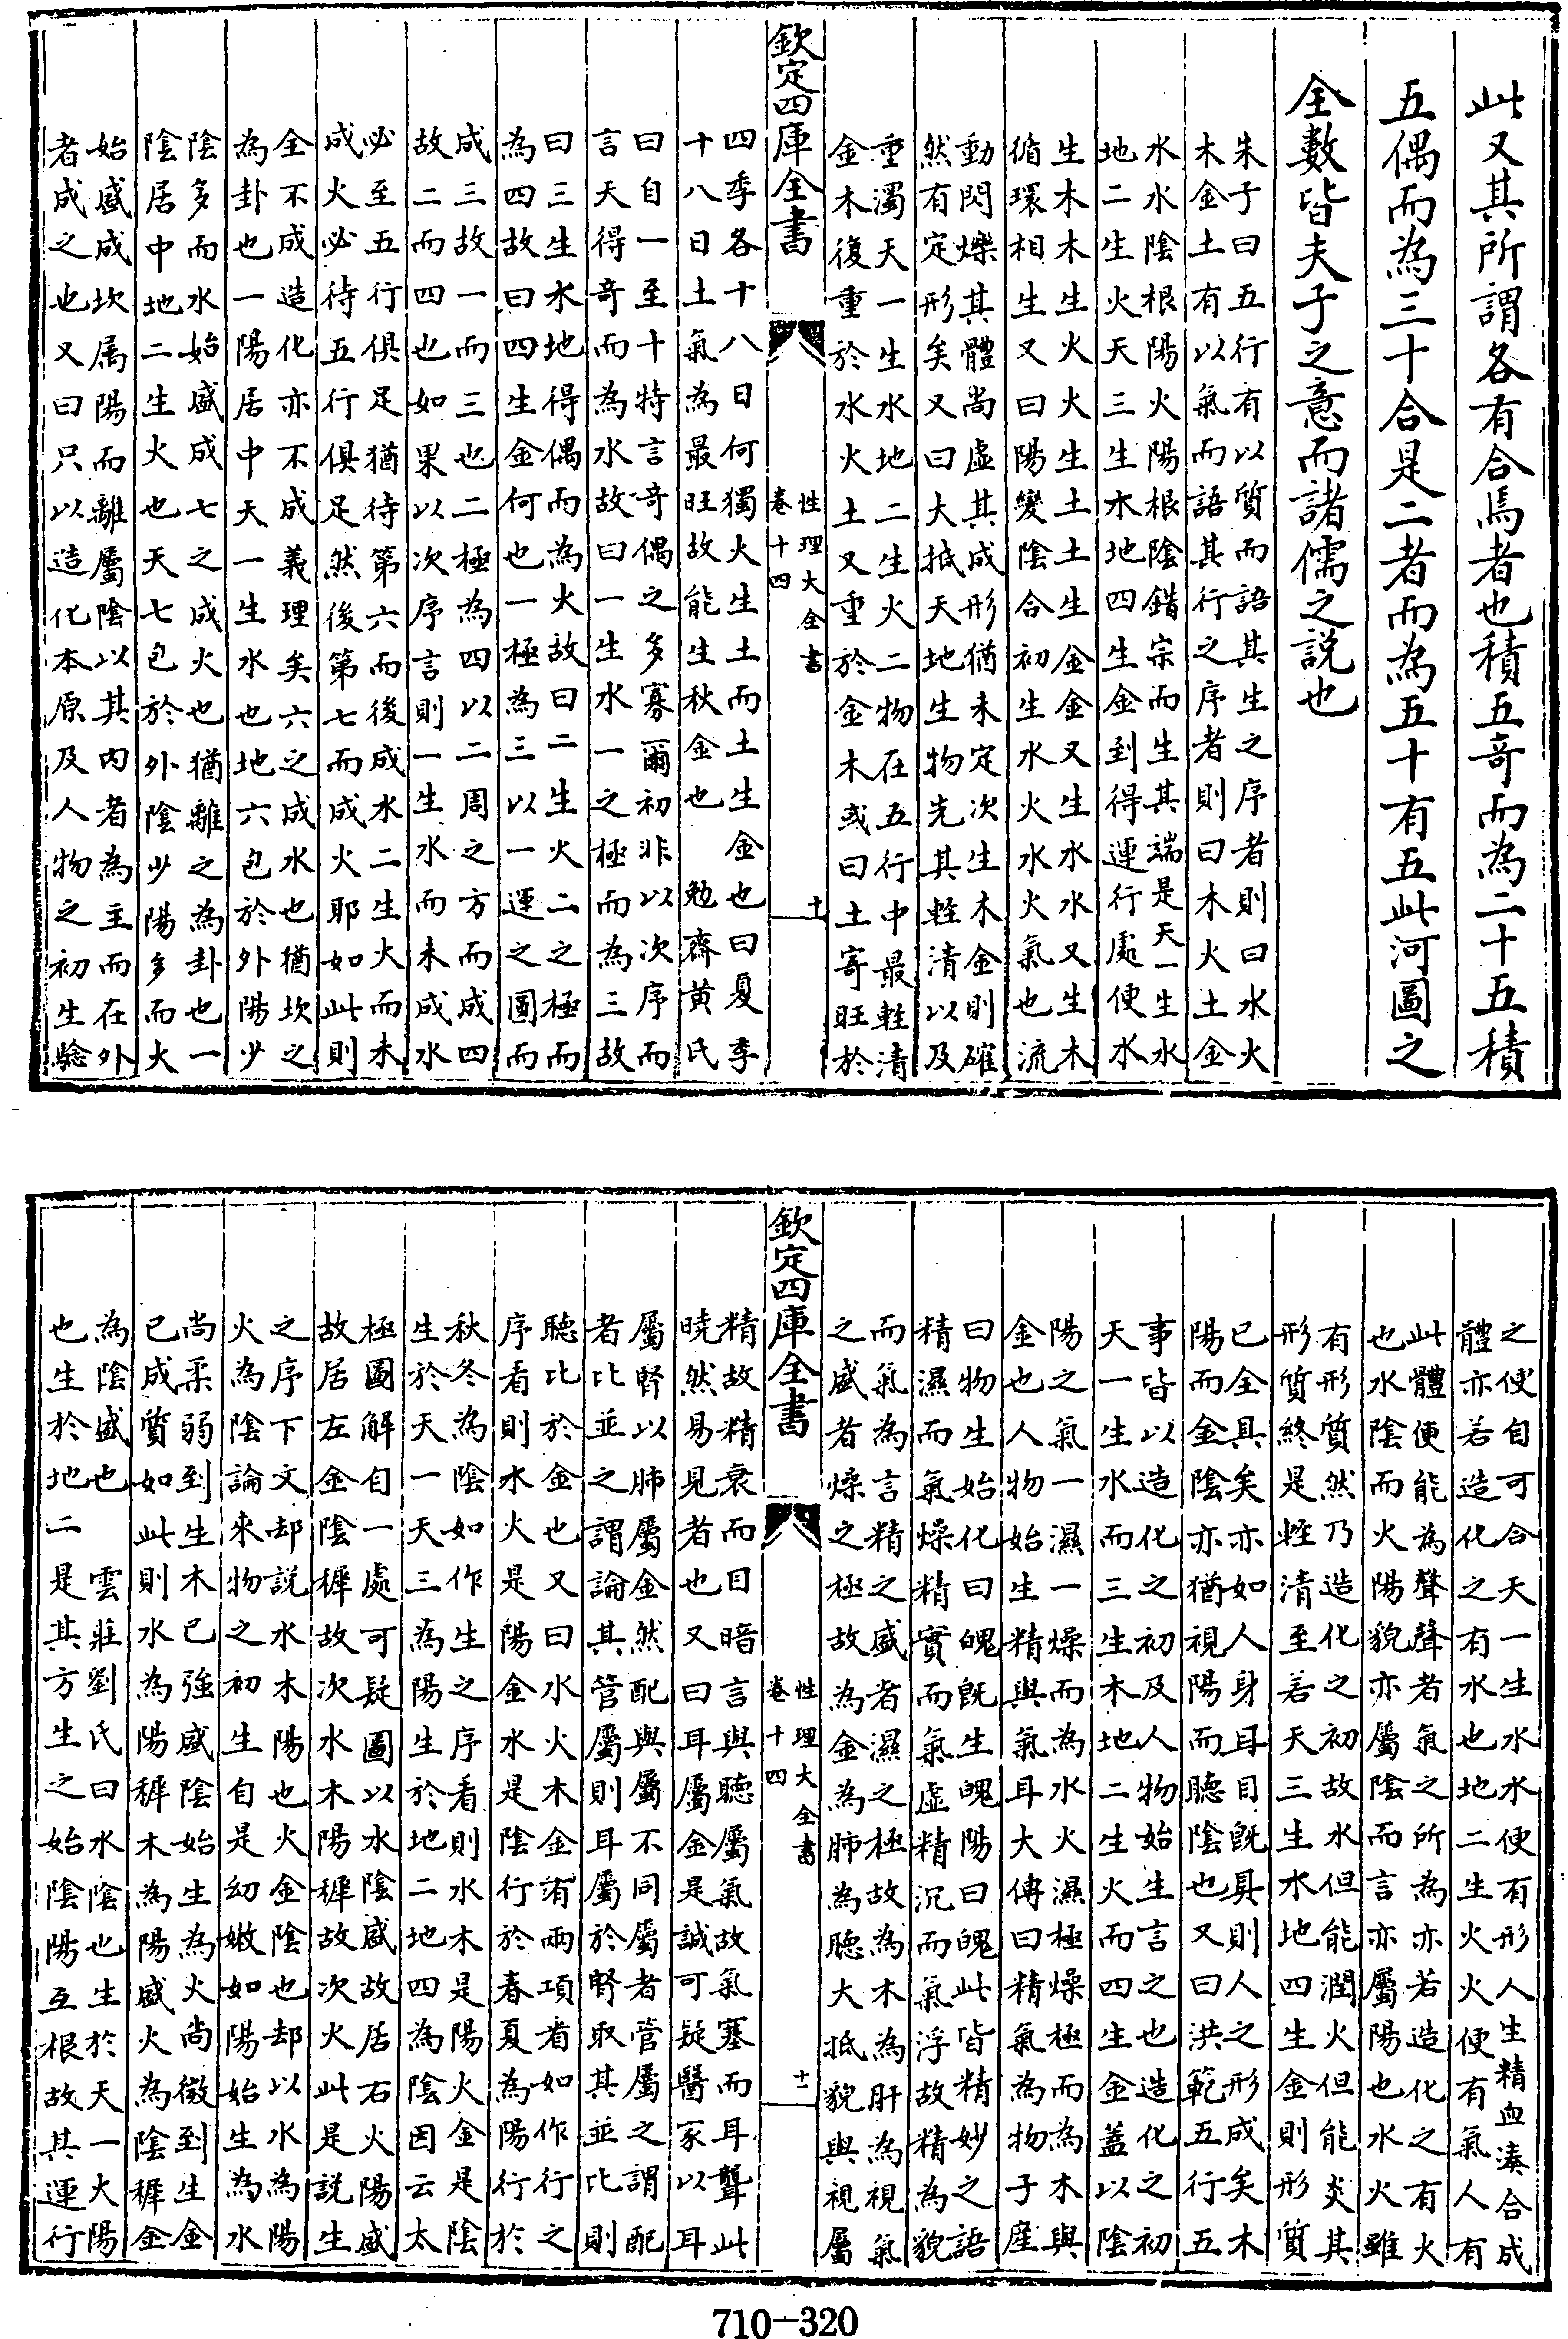 此又其所謂各有合焉者也積五奇而為二十五積
五偶而為三十合是二者而為五十有五此河圖之
全數皆夫子之意而諸儒之説也
朱子曰五行有以質而語其生之序者則曰水火
木金土有以氣而語其行之序者則曰木火土金
水水陰根陽火陽根陰錯宗而生其端是天一生水
地二生火天三生木地四生金到得運行處便水
生木木生火火生土土生金金又生水水又生木
循環相生又曰陽變陰合初生水火水火氣也流
動閃爍其體尚虛其成形猶未定次生木金則確
然有定形矣又曰大抵天地生物先其輕清以及
重濁天一生水地二生火二物在五行中最輕清
金木復重於水火土又重於金木或曰土寄旺於
欽定四庫全書
性理大全書
卷十四
十
四季各十八日何獨火生土而土生金也曰夏季
十八日土氣為最旺故能生秋金也 勉齋黄氏
曰自一至十特言奇偶之多寡爾初非以次序而
言天得奇而為水故曰一生水一之極而為三故
曰三生木地得偶而為火故曰二生火二之極而
為四故曰四生金何也一極為三以一運之圓而
成三故一而三也二極為四以二周之方而成四
故二而四也如果以次序言則一生水而未成水
必至五行俱足猶待第六而後成水二生火而未
成火必待五行俱足然後第七而成火耶如此則
全不成造化亦不成義理矣六之成水也猶坎之
為卦也一陽居中天一生水也地六包於外陽少
陰多而水始盛成七之成火也猶離之為卦也一
陰居中地二生火也天七包於外陰少陽多而火
始盛成坎属陽而離屬陰以其内者為主而在外
者成之也又曰只以造化本原及人物之初生驗
之便自可合天一生水水便有形人生精血湊合成
體亦若造化之有水也地二生火火便有氣人有
此體便能為聲聲者氣之所為亦若造化之有火
也水陰而火陽貌亦屬陰而言亦屬陽也水火雖
有形質然乃造化之初故水但能潤火但能炎其
形質終是輕清至若天三生水地四生金則形質
已全具矣亦如人身耳目既具則人之形成矣木
陽而金陰亦猶視陽而聽陰也又曰洪範五行五
事皆以造化之初及人物始生言之也造化之初
天一生水而三生木地二生火而四生金蓋以陰
陽之氣一濕一燥而為水火濕極燥極而為木與
金也人物始生精與氣耳大傳曰精氣為物子產
曰物生始化曰魄既生魄陽曰魄此皆精妙之語
精濕而氣燥精實而氣虛精沉而氣浮故精為貌
而氣為言精之盛者濕之極故為木為肝為視氣
之盛者燥之極故為金為肺為聽大抵貌與視屬
欽定四庫全書
性理大全書
卷十四
十一
精故精衰而目暗言與聽屬氣故氣塞而耳聾此
曉然易見者也又曰耳屬金是誠可疑醫家以耳
屬腎以肺屬金然配與屬不同屬者管屬之謂配
者比並之謂論其管屬則耳屬於腎取其並比則
聽比於金也又曰水火木金有兩項看如作行之
序看則水火是陽金水是陰行於春夏為陽行於
秋冬為陰如作生之序看則水木是陽火金是陰
生於天一天三為陽生於地二地四為陰因云太
極圖解自一處可疑圖以水陰盛故居右火陽盛
故居左金陰穉故次水木陽穉故次火此是説生
之序下文却説水木陽也火金陰也却以水為陽
火為陰論來物之初生自是幼嫩如陽始生為水
尚柔弱到生木已強盛陰始生為火尚微到生金
已成質如此則水為陽穉木為陽盛火為陰穉金
為陰盛也 雲莊劉氏曰水陰也生於天一火陽
也生於地二是其方生之始陰陽互根故其運行
710-320